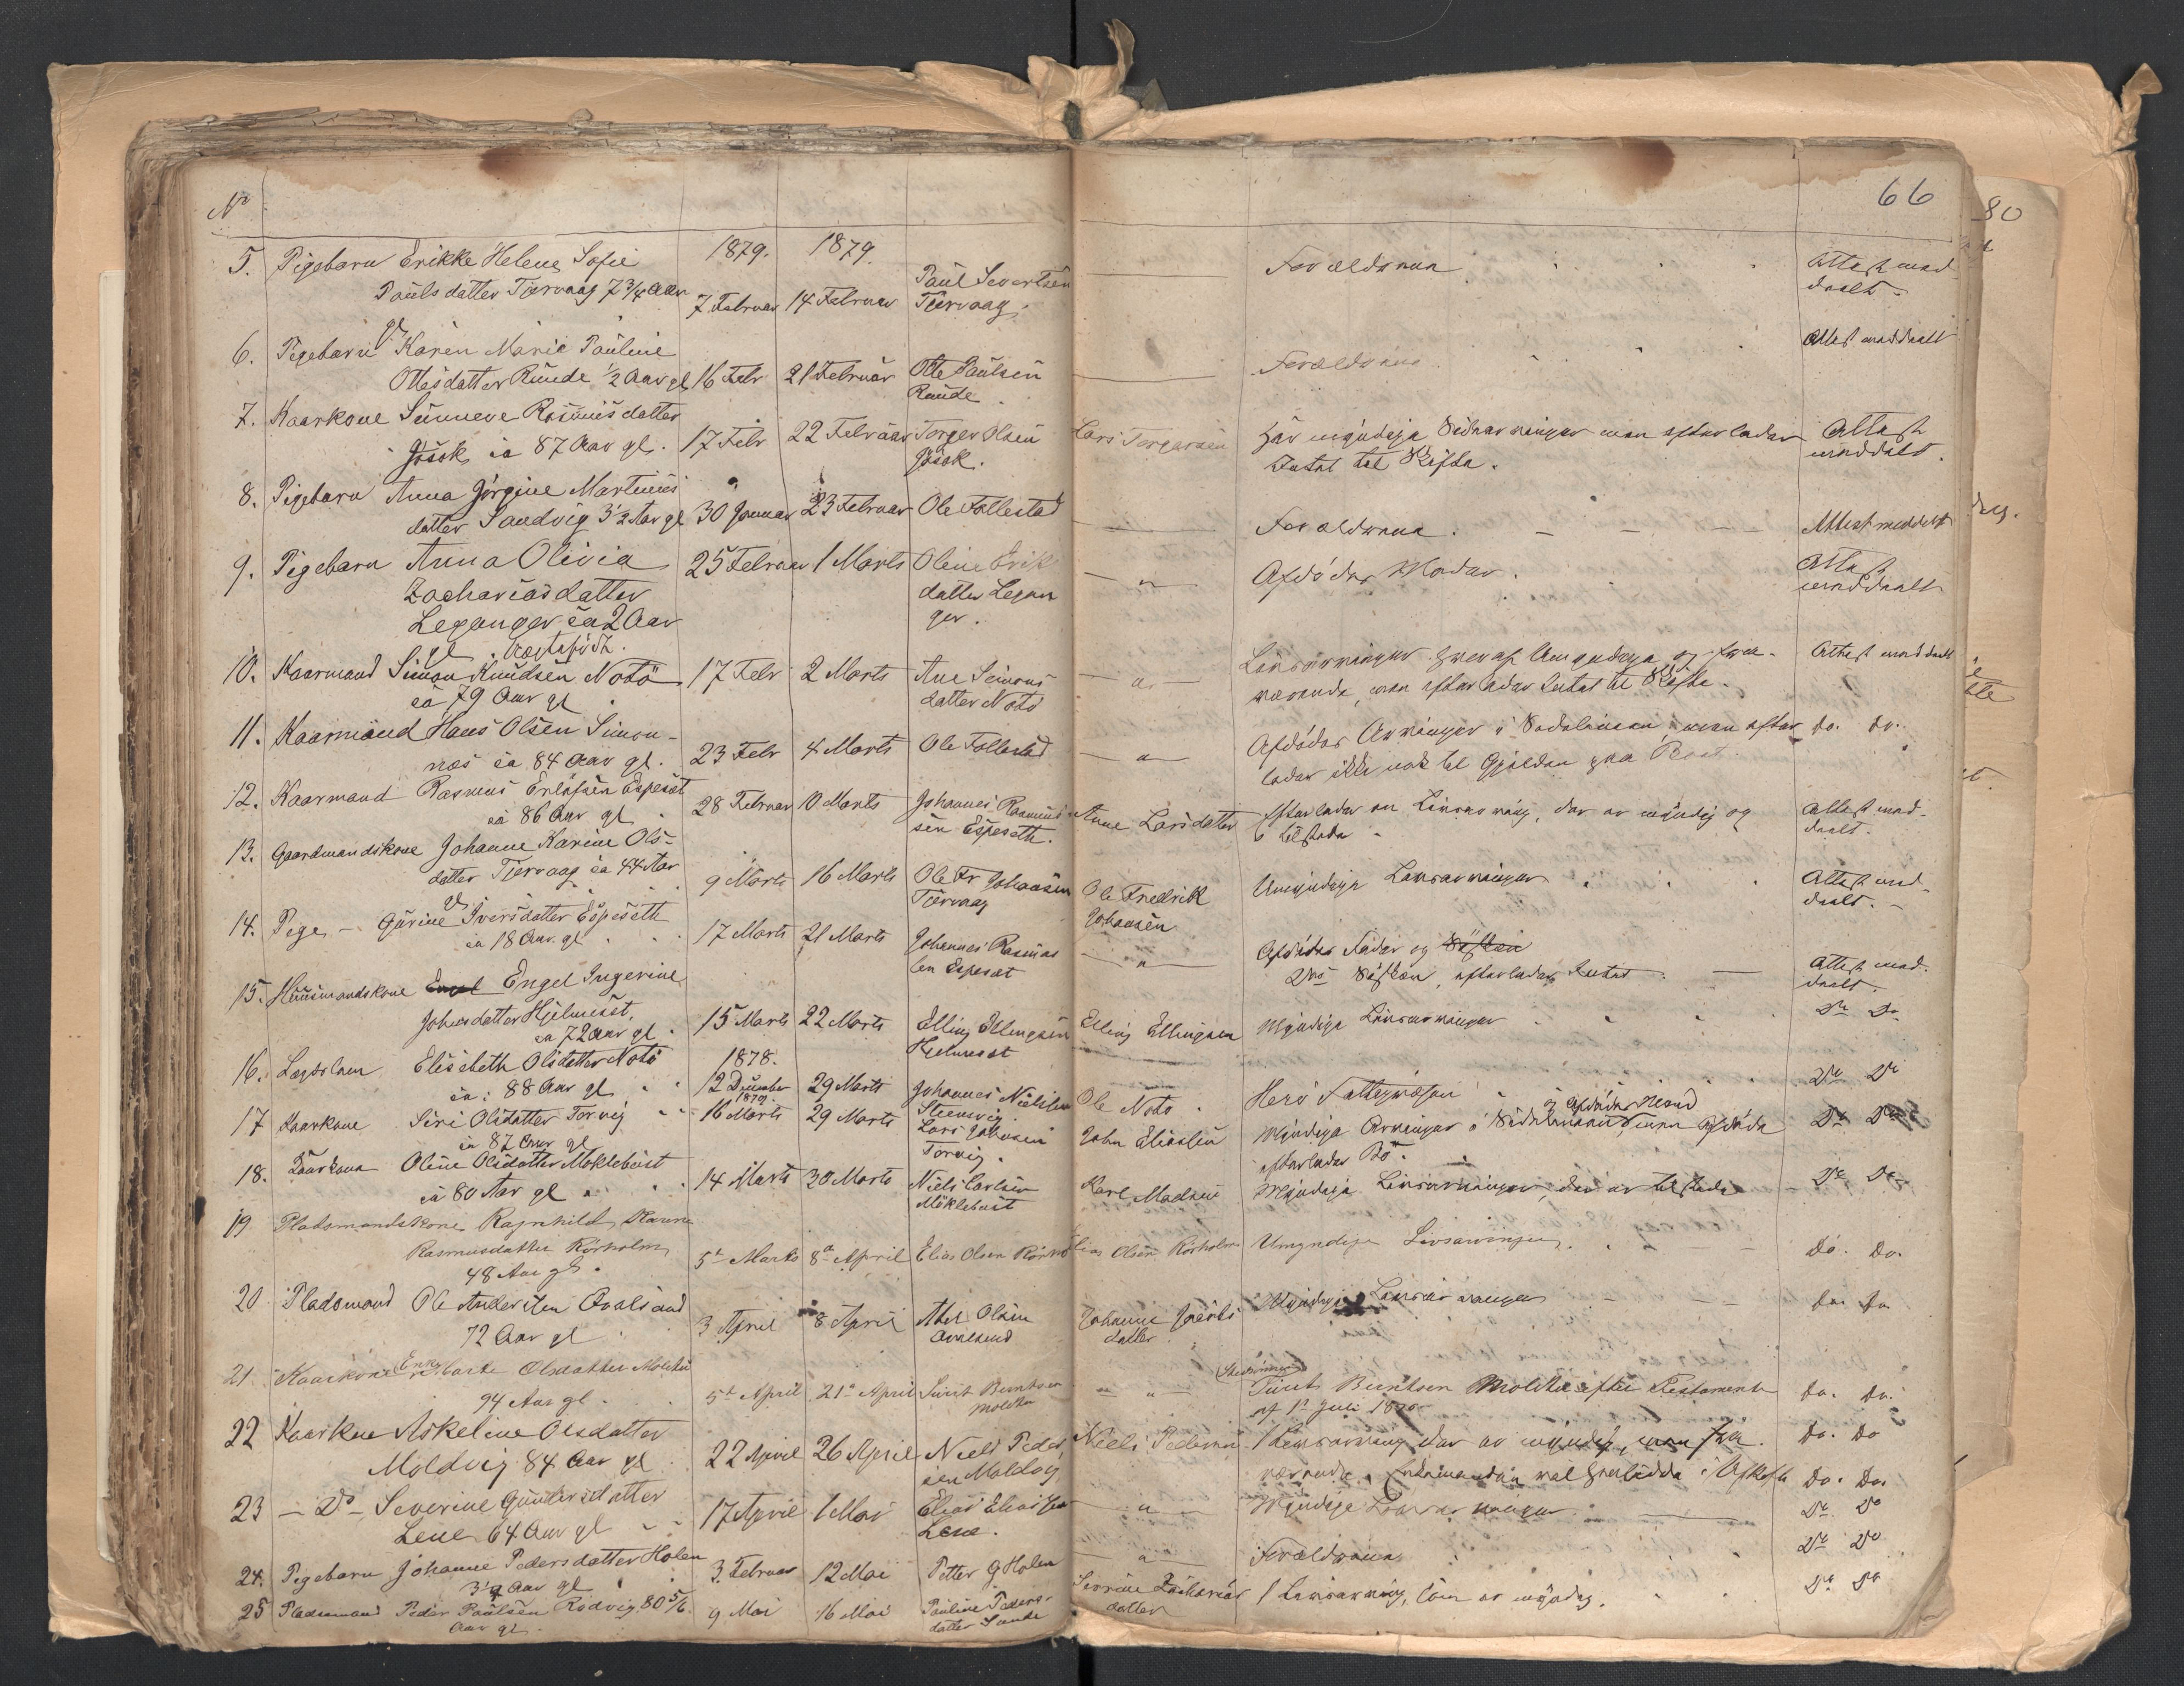 66
80
No
1879. 1879.
5. Pigebarn Erikke Helene Sofie
Paulsdatter Tjervaag 7 3/4 Aar
gl
7 Februar 14 Februar
Paul Severtsen
Tjervaag.
Forældrene
Attest med
deelt.
6. Pigebarn Karen Marie Pauline
Ottesdatter Runde 1/2 Aar gl 16 Febr 21 Februar Otte Paulsen
Runde
Forældrene
Attest meddeelt
7. Kaarkone Sünneve Rasmusdatter
Jøsok ca 87 Aar gl. 17 Febr 22 Februar Torger Olsen
Jøsok.
Lars Torgersen
myndige Livsarvinger men efterlader
Intet til Skifte.
Attest
meddelt.
8. Pigebarn Anna Jørgine Martinus
datter Sandvig 3 1/2 Aar gl 30 Januar 23 Februar Ole Follestad
Forældrene.
Attest meddelt
9. Pigebarn Anna Olivia 25 Februar 1 Marts Oline Erik
Zachariasdatter datter Legan
Leganger ca 2 Aar ger.
gl.
Afdødes Moder.
Attest
meddeelt
10. Kaarmand Simon Knudsen Notø 17 Febr 2 Marts Ane Simons
ca 79 Aar gl datter Notø
Livsarvinger hvoraf Umyndige og fra-
værende, men efterlader Intet til Skifte.
Attest meddeelt
11. Kaarmand Hans Olsen Simon-
næs ca 84 Aar gl. 23 Febr 4 Marts Ole Follestad
Afdødes Arvinger i Sidelinien, men efter
lader ikke nok til Gjælden
do. do.
12. Kaarmand Rasmus Erlafsen Espeset
ca 86 Aar gl 28 Februar 10 Marts Johannes Rasmus
sen Espeseth.
Anne Larsdatter
Efterlader en Livsarving, der er myndig og
tilstede
Attest med-
deelt.
13. Gaardmandskone Johanne Karine Ols-
datter Tjervaag ca 44 Aar
gl
9 Marts 16 Marts Ole Fr Johansen
Tjervaag
Ole Fredrik
Johansen
Umyndige Livsarvinger
Attest med-
deelt.
14. Pige - Gurine Iversdatter Espeseth
ca 18 Aar gl 17 Marts 21 Marts Johannes Rasmus
sen Espeset
Afdødes Fader og Søsken
Søsken, efterlader Intet
Attest med-
deelt.
15. Huusmandskone Engel Ingerine
Johnsdatter Hjelmeset,
ca 72 Aar gl 15 Marts 22 Marts Elling Ellingsen
Hjelmeset
Elling Ellingsen
Myndige Livsarvinger
Do Do
16. Lægdslem Elisabeth Olsdatter Notø 1878.
ca. 88 Aar gl 12 December 29 Marts Johannes Nielsen
Steensvig
Ole Notø
Herø Fattigvæsen
Do Do
17 Kaarkone Siri Olsdatter Torvig 1879 16 Marts 29 Marts Lars Johnsen
ca 87 Aar gl Torvig.
John Eliassen
og Afdødes Mand
Myndige Arvinger i Sidelinien, men Afdøde
efterlader Bo.
Do Do
18. Kaarkone Oline Olsdatter Møklebust
ca 80 Aar gl 14 Marts 30 Marts Niels Carlsen
Møklebust
Karl Madsen
Myndige Livsarvinger, der er tilstede
Do Do
19 Pladsmandskone Ragnhild Karine
Rasmusdatter Rörholm
48 Aar gl. 5te Marts 8de April Elias Olsen Rörholm
Elias Olsen Rörholm
Umyndige Livsarvinger.
Do. Do.
20 Pladsmand Ole Andersen Qvalsund
72 Aar gl 3 April 8 April Abel Olsen
Qvalsund
Johanne Jacobs
datter
Myndige Livsarvinger
Do. Do.
21 Kaarkone Enke Olsdatter Moltu
94 Aar gl 5te April 21de April Siurt Berntsen
Moltu
Siurt Berntsen Moltu efter Testament
af 1ste Juli 1870
Do. Do.
22 Kaarkone Askeline Olsdatter
Moldvig 84 Aar gl 22 April 26 April Niels Peder
sen Moldvig
Niels Pedersen
1 Livsarving der er myndig, men fra-
værende,
Do. Do
Do. Do.
23 - Do - Severine Gundersdatter
Lene 64 Aar gl 17 April 1 Mai Elias Eliassen
Lene.
Myndige Livsarvinger
Do Do
24. Pigebarn Johanne Pedersdatter Holen
3 1/2 Aar gl 3. Februar 12 Mai Petter G Holen
Forældrene
Do Do
25 Pladsmand Peder Paulsen Rödvig 80 5/6
Aar gl. 9 Mai 16 Mai Pauline Peders-
datter Sande
Severine Zacharias
datter
1 Livsarving, som er myndig.
Do Do